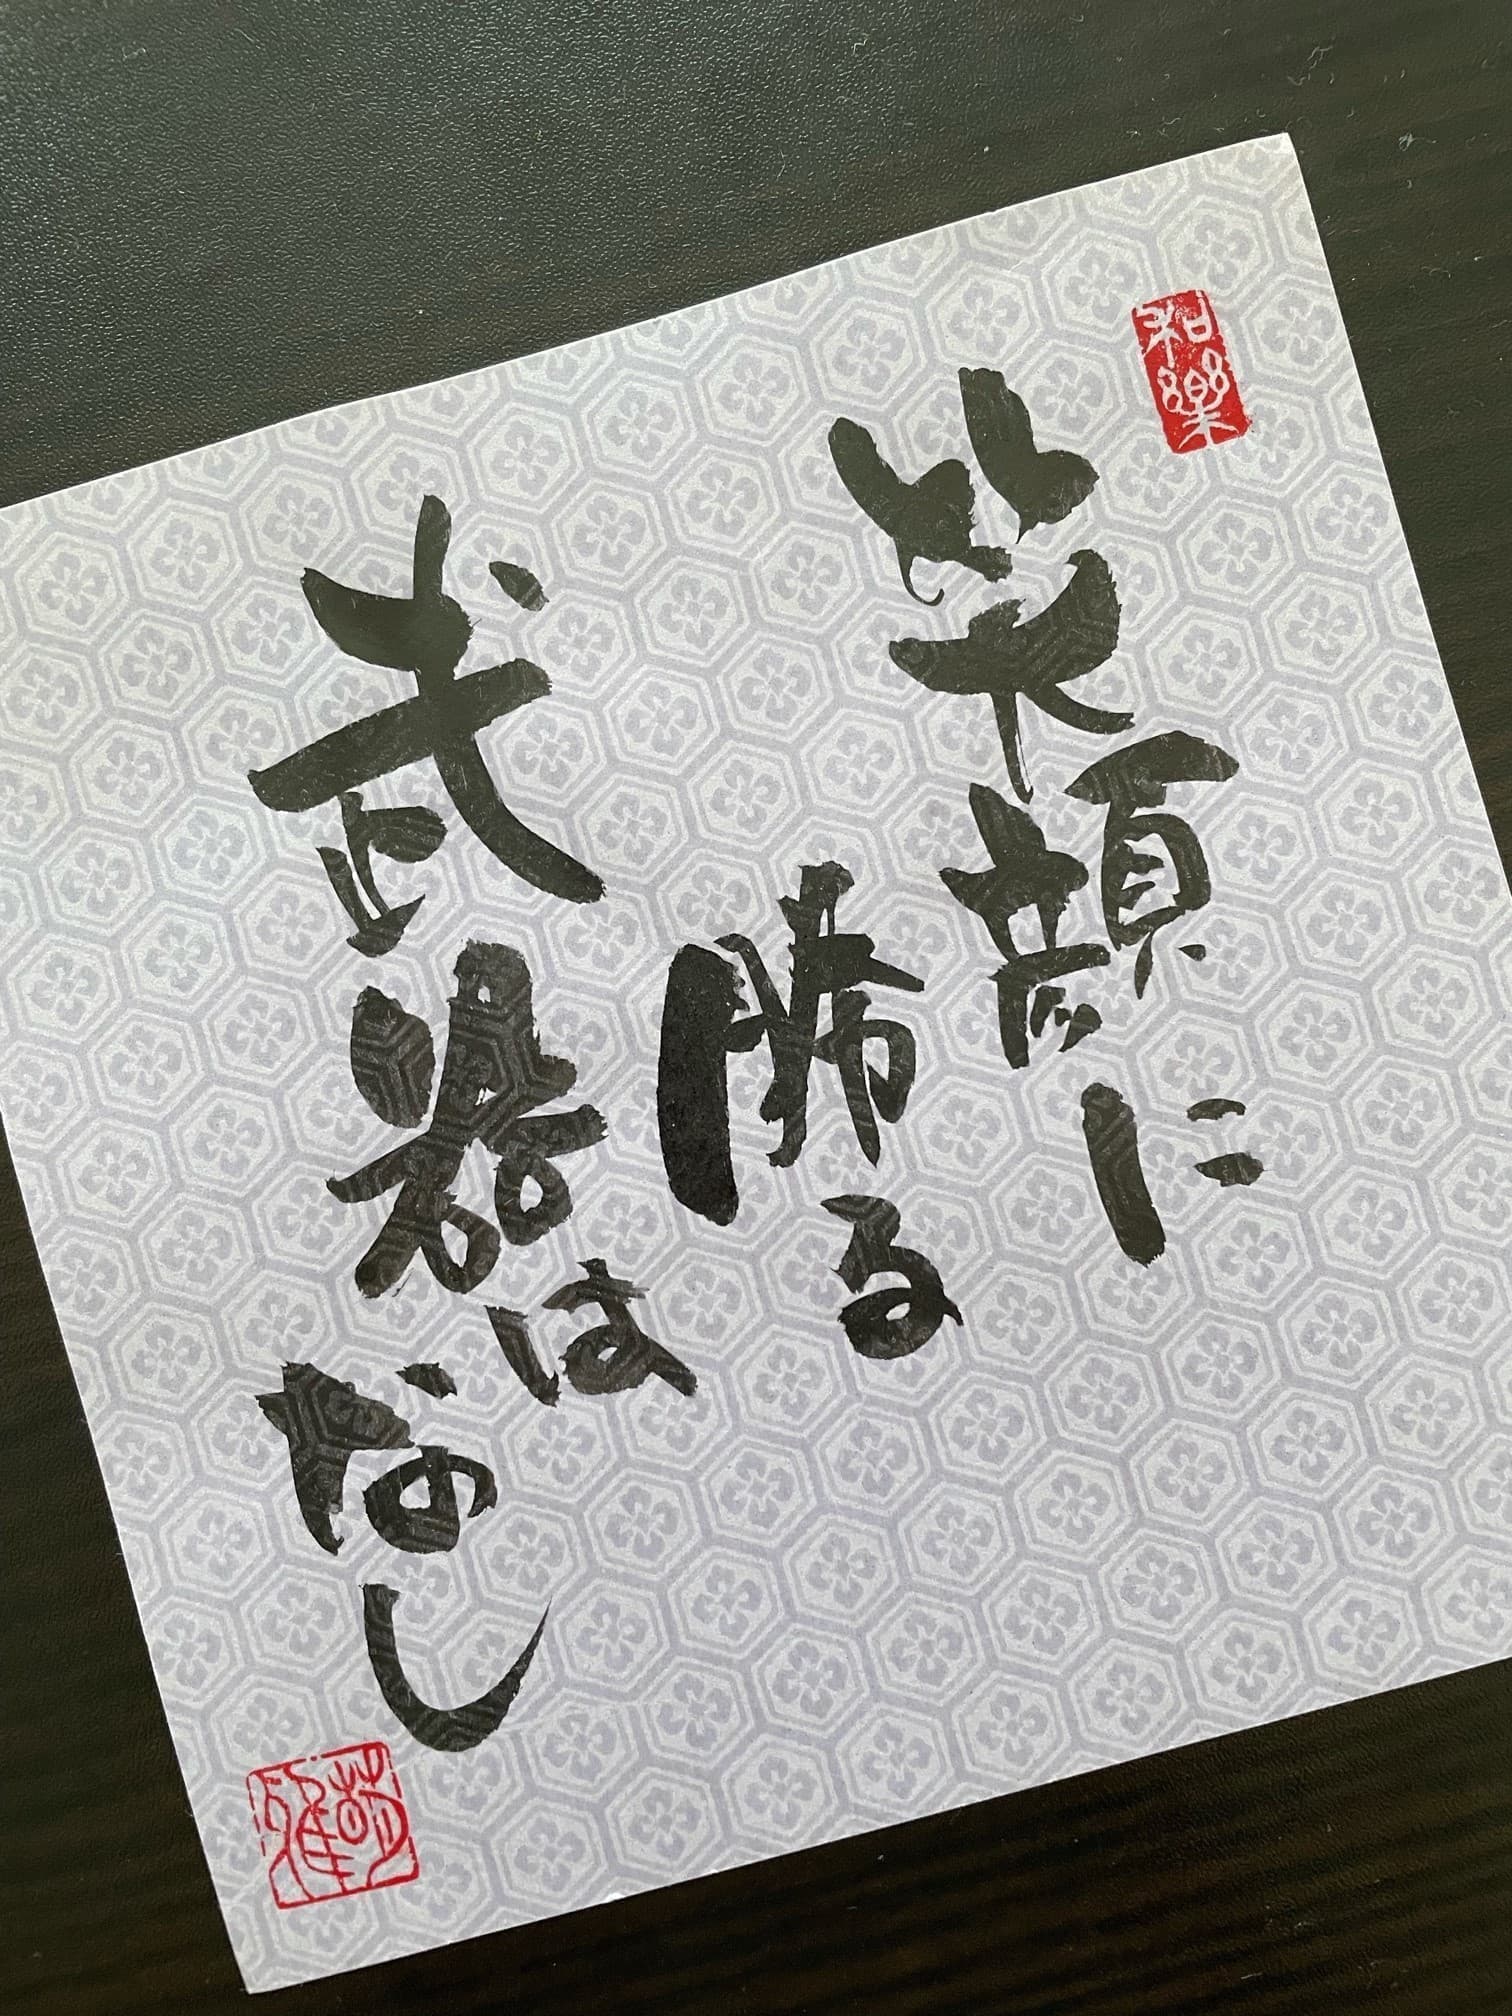 和樂
笑顔に
勝る
武器は
なし